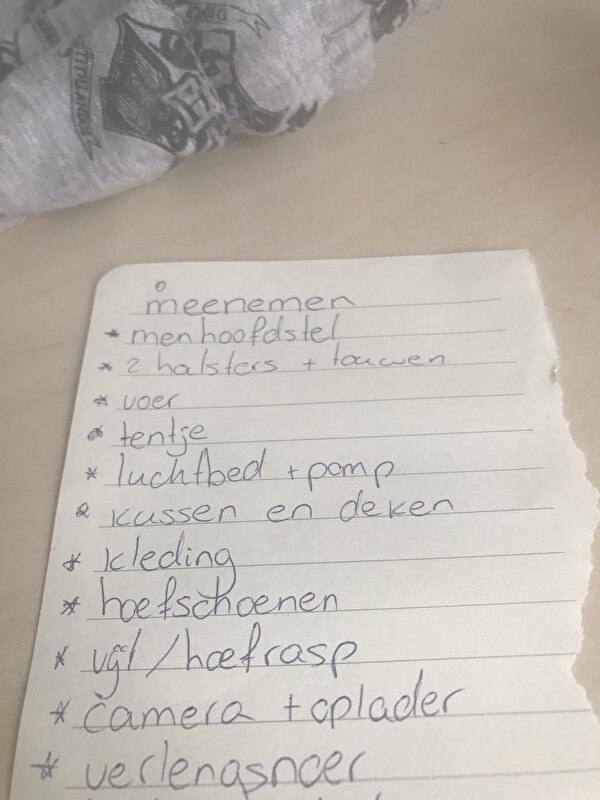 meenemen
* menhoofdstel
* 2 halsters + touwen
* voer
* tentje
* luchtbed + pomp
* kussen en deken
* kleding
* hoefschoenen
* vijl / hoefrasp
* camera + oplader
* verlengsnoer